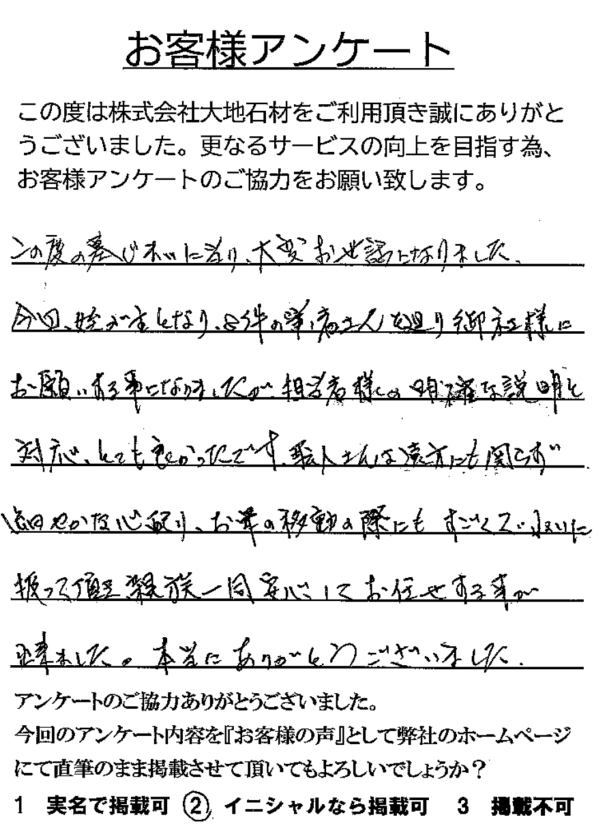 お客様アンケート
この度は株式会社大地石材をご利用頂き誠にありがと
うございました。更なるサービスの向上を目指す為、
お客様アンケートのご協力をお願い致します。
この度の墓じまいに当り、大変お世話になりました。
今回、姪が主となり、8件の業者さんを廻り御社様に
お願いする事になりましたが、担当者様の明確な説明と
対応、とても良かったです。職人さんは遠方にも関らず
細やかな心配り、お骨の移動の際にもすごくていねいに
扱って頂き親族一同安心してお任せする事が
出来ました。本当にありがとうございました。
アンケートのご協力ありがとうございました。
今回のアンケート内容を『お客様の声』として弊社のホームページ
にて直筆のまま掲載させて頂いてもよろしいでしょうか？
1 実名で掲載可 ② イニシャルなら掲載可 3 掲載不可